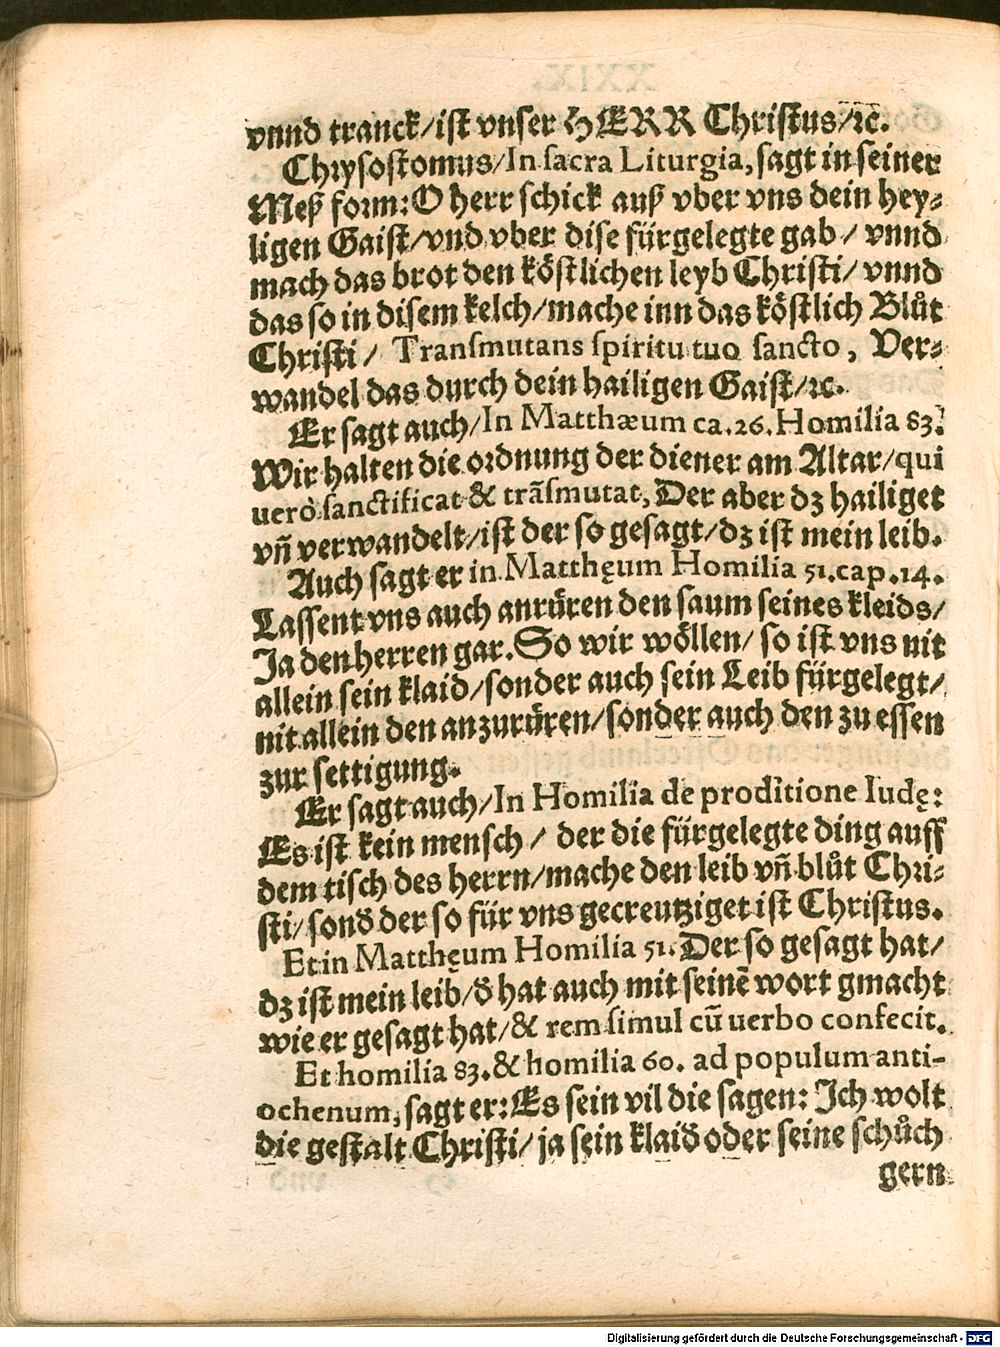 vnnd tranck/ist vnser HERR Christus/ꝛc.
Chrysostomus/In sacra Liturgia, sagt in seiner
Meß form: O herr schick auß vber vns dein hey⸗
ligen Gaist/vnd vber dise fürgelegte gab / vnnd
mach das brot den köstlichen leyb Christi/ vnnd
das so in disem kelch/mache inn das köstlich Blůt
Christi / Transmutans spiritu tuo sancto, Ver⸗
wandel das durch dein hailigen Gaist/ꝛc.
Er sagt auch/In Matthæum ca.26. Homilia 83.
Wir halten die ordnung der diener am Altar/qui
uerò sanctificat & trãsmutat, Der aber dz hailiget
vñ verwandelt/ist der so gesagt/dz ist mein leib.
Auch sagt er in Matthęum Homilia 51.cap.14.
Lassent vns auch anrüren den saum seines kleids/
Ja den herren gar. So wir wöllen/ so ist vns nit
allein sein klaid/sonder auch sein Leib fürgelegt/
nit allein den anzurüren/sonder auch den zu essen
zur settigung.
Er sagt auch/In Homilia de proditione Iudę:
Es ist kein mensch / der die fürgelegte ding auff
dem tisch des herrn/mache den leib vñ blůt Chri⸗
sti/ sond̃ der so für vns gecreutziget ist Christus.
Et in Matthęum Homilia 51. Der so gesagt hat/
dz ist mein leib/d̃ hat auch mit seinẽ wort gmacht
wie er gesagt hat/& rem simul cũ uerbo confecit.
Et homilia 83. & homilia 60. ad populum anti-
ochenum, sagt er: Es sein vil die sagen: Ich wolt
die gestalt Christi/ ja sein klaid oder seine schůch
gern
Digitalisierung gefördert durch die Deutsche Forschungsgemeinschaft - DFG